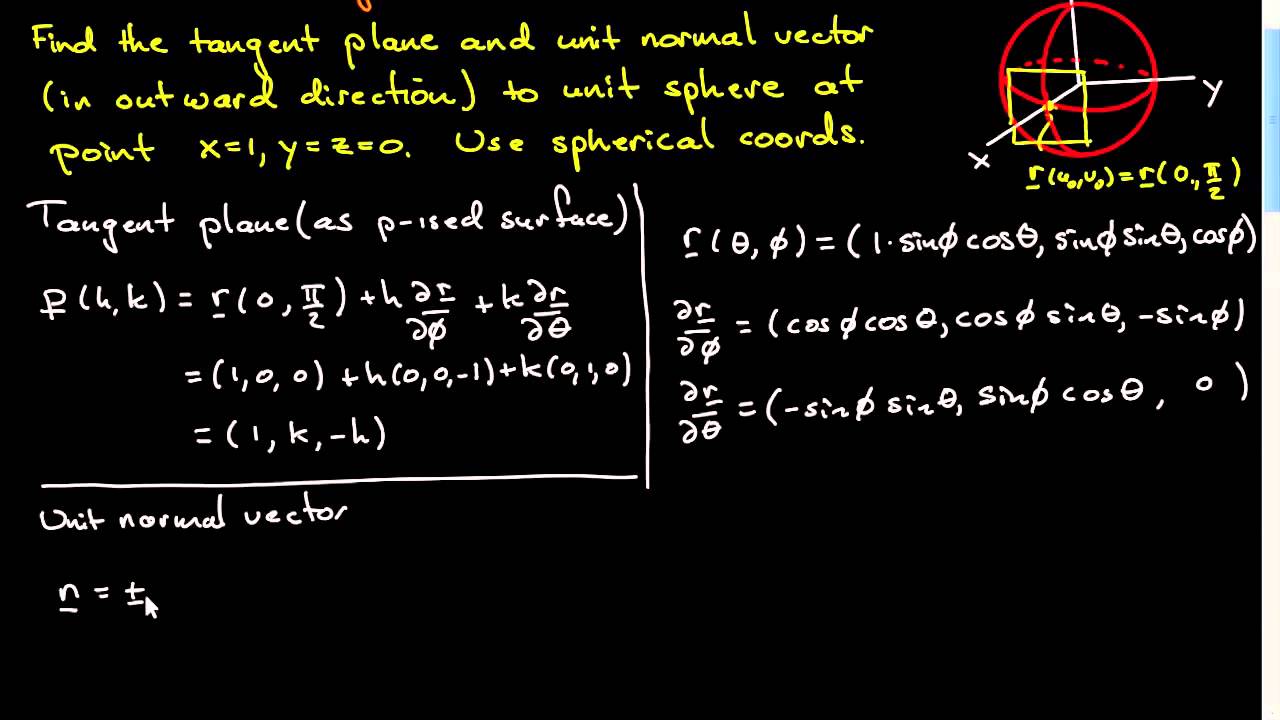 Find the tangent plane and unit normal vector
(in outward direction) to unit sphere at
point x=1, y=z=0. Use spherical coords.
y
x
r(u₀,v₀)=r(0,π/2)
Tangent plane (as p-ised surface)
p(h,k) = r(0, π/2) + h ∂r/∂ϕ + k ∂r/∂θ
= (1, 0, 0) + h(0, 0, -1) + k(0, 1, 0)
= (1, k, -h)
r(θ, ϕ) = (1·sinϕ cosθ, sinϕ sinθ, cosϕ)
∂r/∂ϕ = (cosϕ cosθ, cosϕ sinθ, -sinϕ)
∂r/∂θ = (-sinϕ sinθ, sinϕ cosθ, 0)
Unit normal vector
n = ±